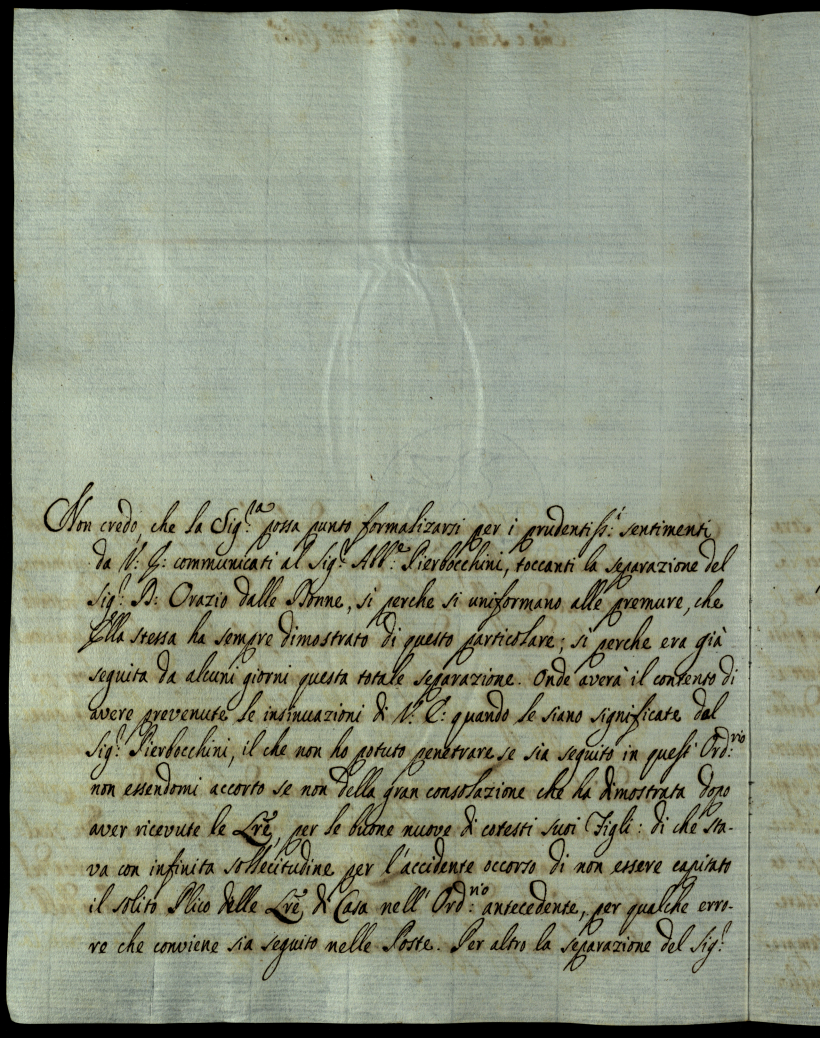 Non credo, che la Sig.ra possa punto formalizarsi per i prudentiss.i sentimenti
da V: E: communicati al Sig.r Abb.e Pierbocchini, toccanti la separazione del
Sig.r D: Orazio dalle Donne, si perche si uniformano alle premure, che
Ella stessa ha sempre dimostrato di questo particolare; si perche era già
seguita da alcuni giorni questa totale separazione. Onde averà il contento di
avere prevenute le insinuazioni di V: E: quando le siano significate dal
Sig.r Pierbocchini, il che non ho potuto penetrare se sia seguito in quest' Ord:rio
non essendomi accorto se non della gran consolazione che ha dimostrata dopo
aver ricevute le Lre, per le buone nuove di cotesti suoi Figli: di che sta-
va con infinita sollecitudine per l'accidente occorso di non essere capitato
il solito Plico delle Lre di Casa nell' Ord:rio antecedente, per qualche erro-
re che conviene sia seguito nelle Poste. Per altro la separazione del Sig.r